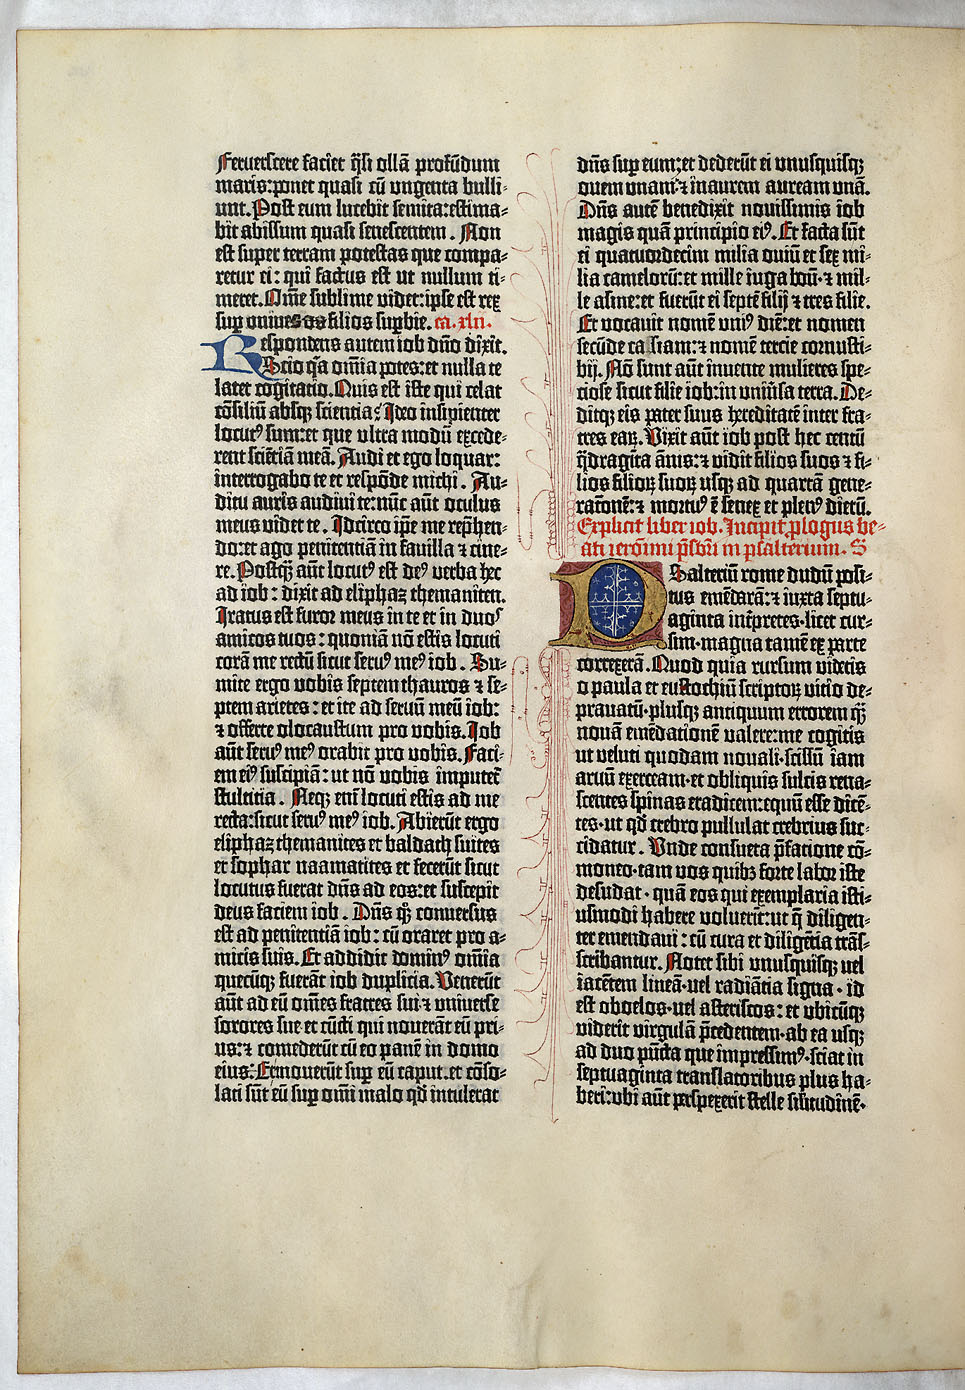 Feruescere faciet q̄si ollā profūdum
maris: ponet quasi cū vngenta bulli-
unt. Post eum lucebit semita: estima-
bit abissum quasi senescentem. Non
est super terram potestas que compa-
retur ei: qui factus est ut nullum ti-
meret. Om̄e sublime videt: ipse est rex
sup oniues os filios supbie. ca. xlii.
Respondens autem iob dn̄o dixit.
Scio q̄a om̄ia potes: et nulla te
latet cogitatio. Quis est iste qui celat
cōsiliū absqꝫ scientia? Ideo insipienter
locutꝰ sum: et que vltra modū excede-
rent sciētiā meā. Audi et ego loquar:
interrogabo te et respōde michi. Au-
ditu auris audiui te: nūc aūt oculus
meus videt te. Idcirco ip̄e me rep̄hen-
do: et ago penitentiā in fauilla ⁊ cine-
re. Postqꝫ aūt locutꝰ est deꝰ verba hec
ad iob: dixit ad eliphaz themaniten.
Iratus est furor meus in te et in duoˢ
amicos tuos: quoniā nō estis locuti
corā me rectū sicut seruꝰ meꝰ iob. Su-
mite ergo vobis septem thauros ⁊ se-
ptem arietes: et ite ad seruū meū iob:
⁊ offerte olocaustum pro vobis. Iob
aūt seruꝰ meꝰ orabit pro vobis. Faci-
em eiꝰ suscipiā: ut nō vobis imputet̄
stultitia. Neqꝫ eni locuti estis ad me
recta: sicut seruꝰ meꝰ iob. Abierūt ergo
eliphaz themanites et baldach suites
et sophar naamatites et fecerūt sicut
locutus fuerat dn̄s ad eos: et suscepit
deus faciem iob. Dn̄s qꝫ conuersus
est ad penitentiā iob: cū oraret pro a-
micis suis. Et addidit dominꝰ om̄ia
quecūqꝫ fuerāt iob duplicia. Venerūt
aūt ad eū om̄es fratres sui ⁊ vniuerse
sorores sue et cūcti qui nouerāt eū pri-
us: ⁊ comederūt cū eo panē in domo
eius: Et mouerūt sup eū caput. et cōso-
lati sūt eū sup om̄i malo qd̄ intulerat
dn̄s sup eum: et dederūt ei vnusquisqꝫ
ouem vnam ⁊ inaurem auream vnā.
Dn̄s autē benedixit nouissimis iob
magis quā principio eiꝰ. Et facta sūt
ei quatuordecim milia ouiū et sex mi-
lia camelorū: et mille iuga boū ⁊ mil-
le asine: et fuerūt ei septē filij ⁊ tres filie.
Et vocauit nomē vniꝰ diē: et nomen
secūde cassiam: ⁊ nomē tercie cornusti-
bij. Nō sunt aūt inuente mulieres spe-
ciose sicut filie iob: in vniūsa terra. De-
ditqꝫ eis pater suus hereditatē inter fra-
tres eaꝝ. Vixit aūt iob post hec centū
q̄draginta annis: ⁊ vidit filios suos ⁊ fi-
lios filioꝝ suoꝝ usqꝫ ad quartā gene-
rationē: ⁊ mortuꝰ ē senex et plenꝰ dierū.
Explicit liber iob. Incipit plogus be-
ati ieronimi p̄sbri in psalterium. S
Salteriū rome dudū posi-
tus emēdarā: ⁊ iuxta septu-
aginta int̄pretes· licet cur-
sim· magna tamē ex parte
correxerā. Quod quia rursum videtis
o paula et eustochiū scriptoꝝ vitio de-
prauatū· plusqꝫ antiquum errorem qꝫ
nouā emēdationē valere: me cogitis
ut veluti quodam nouali· scissū iam
aruū exerceam· et obliquis sulcis rena-
scentes spinas eradicem: equū esse dicē-
tes· ut qd̄ crebro pullulat crebrius suc-
cidatur. Vnde consueta p̄fatione cō-
moneo· tam vos quibꝫ forte labor iste
desudat· quā eos qui exemplaria isti-
usmodi habere voluerit: ut q̄ diligen-
ter emendaui: cū cura et diligētia trās-
scribantur. Notet sibi vnusquisqꝫ uel
iacētem lineā· uel radiātia signa· id
est obelos· uel asteriscos: et ubicūqꝫ
viderit virgulā p̄cedentem· ab ea usqꝫ
ad duo pūcta que impressimꝰ· sciat in
septuaginta translatoribus plus ha-
beri: vbi aūt perspexerit stelle silitudinē·